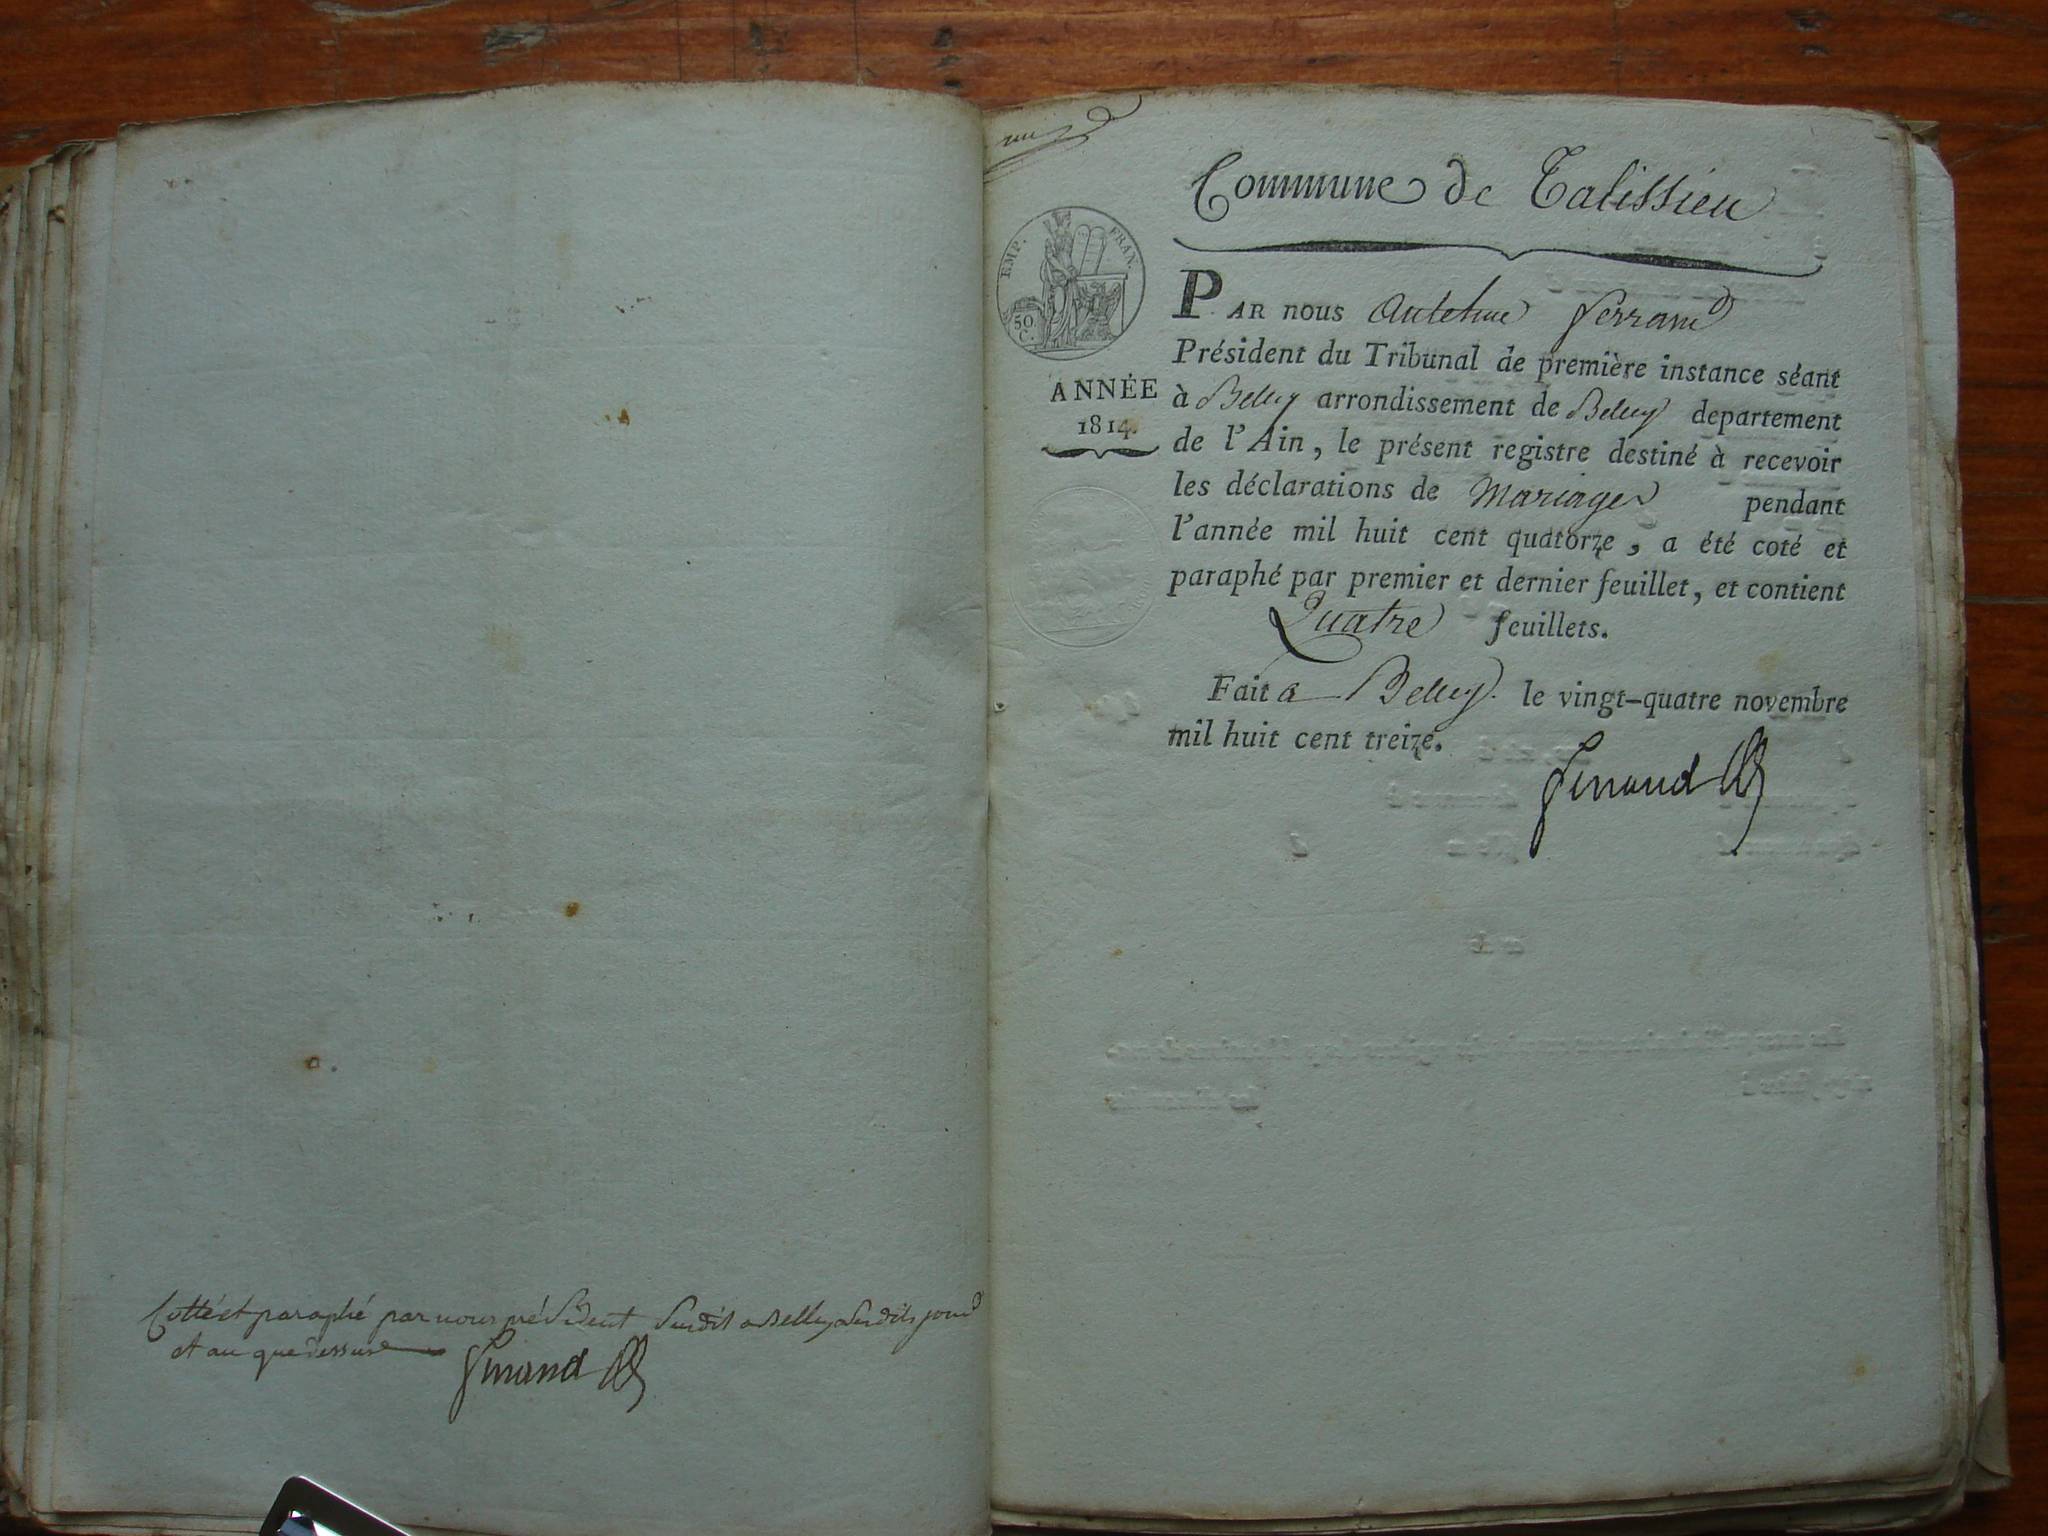 Cotté et paraphé par nous président susdit a Belley les dits jour
et an que dessus
Ferrand
un
Commune de Talissieu
EMP. FRAN.
50
C.
ANNÉE
1814.
PAR nous Antelme Ferrand
Président du Tribunal de première instance séant
à Belley arrondissement de Belley departement
de l'Ain, le présent registre destiné à recevoir
les déclarations de Mariages pendant
l'année mil huit cent quatorze, a été coté et
paraphé par premier et dernier feuillet, et contient
Quatre feuillets.
Fait a Belley. le vingt-quatre novembre
mil huit cent treize.
Ferrand